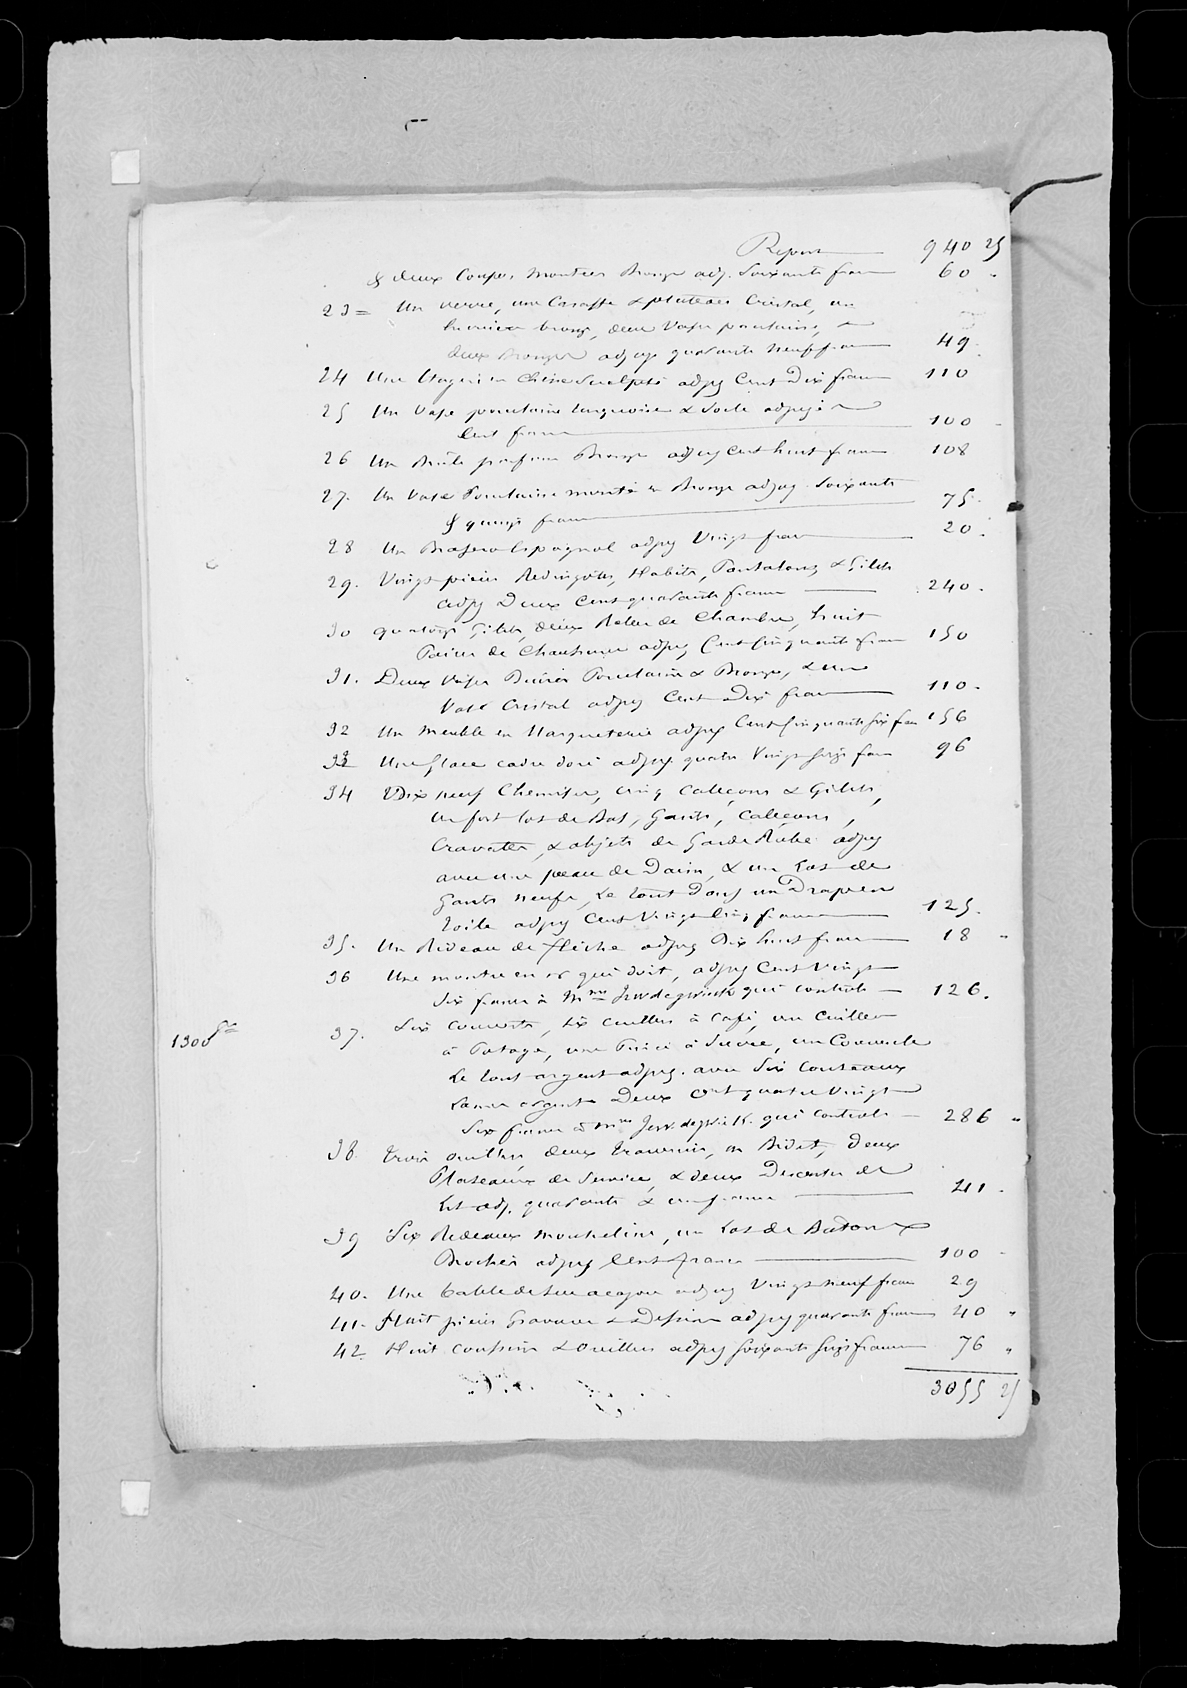 Report 940 25
& deux Coupes montées Bronze adj. Soixante francs 60 "
23 = Un verre, une Caraffe & plateaux Cristal, un
bronze, deux Vases porcelaine,
deux Bronzes adjugé quarante neuf francs 49
24 Une Etagère en Chêne Sculpté adjug Cent Dix francs 110
25 Un Vase porcelaine turquoise & Socle adjugé
Cent francs 100
26 Un Brûle parfum Bronze adjug Cent huit francs 108
27. Un Vase Porcelaine monté en Bronze adjug Soixante
& quinze francs 75
28 Un Brasero Espagnol adjug Vingt francs 20
29. Vingt pièces Redingotes, Habits, Pantalons, & Gilets
adjug Deux Cent quarante francs 240
30 quatorze Gilets, deux Robes de Chambre, huit
Paires de Chaussures adjug Cent Cinquante francs 150
31. Deux Vases Porcelaine & Bronze, & un
Vase Cristal adjug Cent Dix francs 110
32 Un Meuble en Marqueterie adjug Cent Cinquante Six francs 156
33 Une glace cadre doré adjug quatre Vingt Seize francs 96
34 Dix neuf Chemises, cinq Caleçons & Gilets,
Un fort lot de Bas, Gants, Caleçons,
Cravates, & objets de Garde Robe adjug
avec une peau de Daim, & un Lot de
Gants neufs, Le tout dans un Drap en
toile adjug Cent Vingt Cinq francs 125
35. Un Rideau de flèche adjug Dix huit francs 18 "
36 Une montre en or qui doit, adjug Cent Vingt
Six francs à Mme qui contrôle 126
1300
37. Six Couverts, Six Cuillers à Café, une Cuiller
à Potage, une Pince à Sucre, un Couvercle
Le tout argent adjug. avec Six Couteaux
Lames argent Deux Cent quatre Vingt
Six francs à Mme qui contrôle 286 "
38 Trois oreillers, deux traversins, un Bidet, Deux
Plateaux de Service, & deux Descentes de
Lit adj. quarante & un francs 41
39 Six Rideaux mousseline, un Lot de Batons
Brochés adjug Cent francs 100
40. Une table de Jeu acajou adjug Vingt neuf francs 29
41. Huit pièces Gravures & Dessins adjug quarante francs 40 "
42 Huit coussins & oreillers adjug Soixante Seize francs 76 "
3055 25